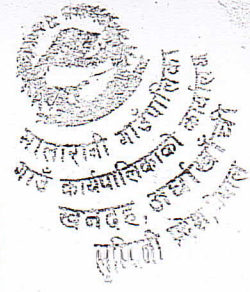 मालारानी गाउँपालिका
गाउँ कार्यपालिकाको कार्यालय
खनदह, अर्घाखाँची
लुम्बिनी